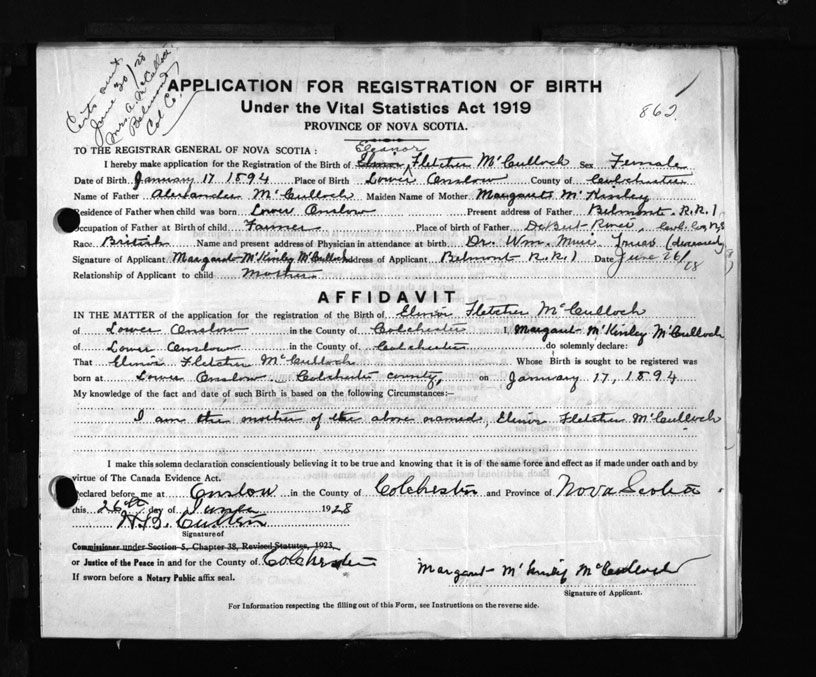 Certs sent
June 30/28
Mrs A. McCulloch
Belmont
Col Co.
862
APPLICATION FOR REGISTRATION OF BIRTH
Under the Vital Statistics Act 1919
PROVINCE OF NOVA SCOTIA.
TO THE REGISTRAR GENERAL OF NOVA SCOTIA:
Eleanor
I hereby make application for the Registration of the Birth of Elinor Fletcher McCulloch Sex Female
Date of Birth January 17 1894 Place of Birth Lower Onslow County of Colchester
Name of Father Alexander McCulloch Maiden Name of Mother Margaret McKinley
Residence of Father when child was born Lower Onslow Present address of Father Belmont. R.R.1
Occupation of Father at Birth of child Farmer Place of birth of Father DeBert River, Col. Co, N.S
Race British Name and present address of Physician in attendance at birth Dr. Wm. Muir Truro (deceased)
Signature of Applicant Margaret McKinley McCulloch Address of Applicant Belmont R.R.1 Date June 26/28
Relationship of Applicant to child Mother
AFFIDAVIT
IN THE MATTER of the application for the registration of the Birth of Elinor Fletcher McCulloch
of Lower Onslow in the County of Colchester I, Margaret McKinley McCulloch
of Lower Onslow in the County of Colchester do solemnly declare:
That Elinor Fletcher McCulloch Whose Birth is sought to be registered was
born at Lower Onslow Colchester county, on January 17, 1894
My knowledge of the fact and date of such Birth is based on the following Circumstances:—
I am the mother of the above named, Elinor Fletcher McCulloch
I make this solemn declaration conscientiously believing it to be true and knowing that it is of the same force and effect as if made under oath and by
virtue of The Canada Evidence Act.
Declared before me at Onslow in the County of Colchester and Province of Nova Scotia
this 26th day of June 1928
Signature of
Commissioner under Section 5, Chapter 38, Revised Statutes, 1923,
or Justice of the Peace in and for the County of Colchester
Margaret McKinley McCulloch
If sworn before a Notary Public affix seal.
Signature of Applicant.
For Information respecting the filling out of this Form, see Instructions on the reverse side.